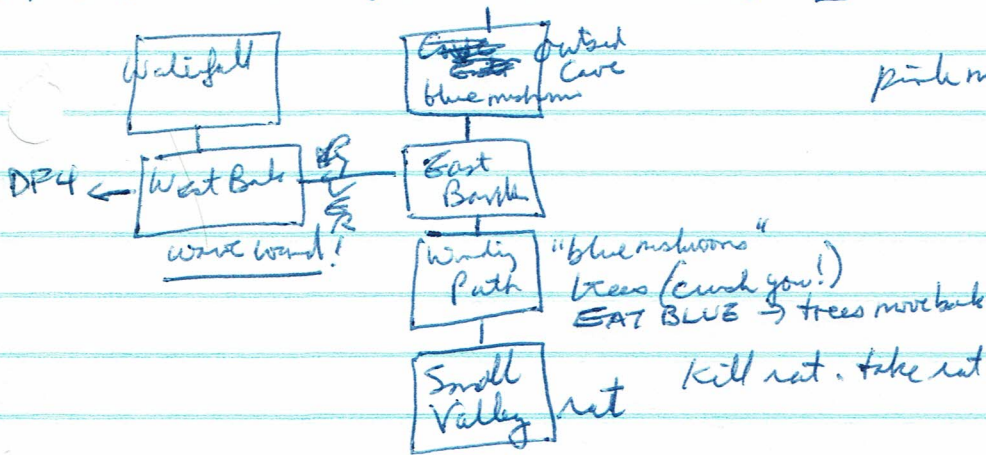 Waterfall
outsid
Cave
blue mushrooms
pink m
DP4 ← West Bank
RIVER
East
Bank
wave wand!
Winding
Path
"blue mushrooms"
trees (crush you!)
EAT BLUE → trees move back
Small
Valley
rat
Kill rat. take rat